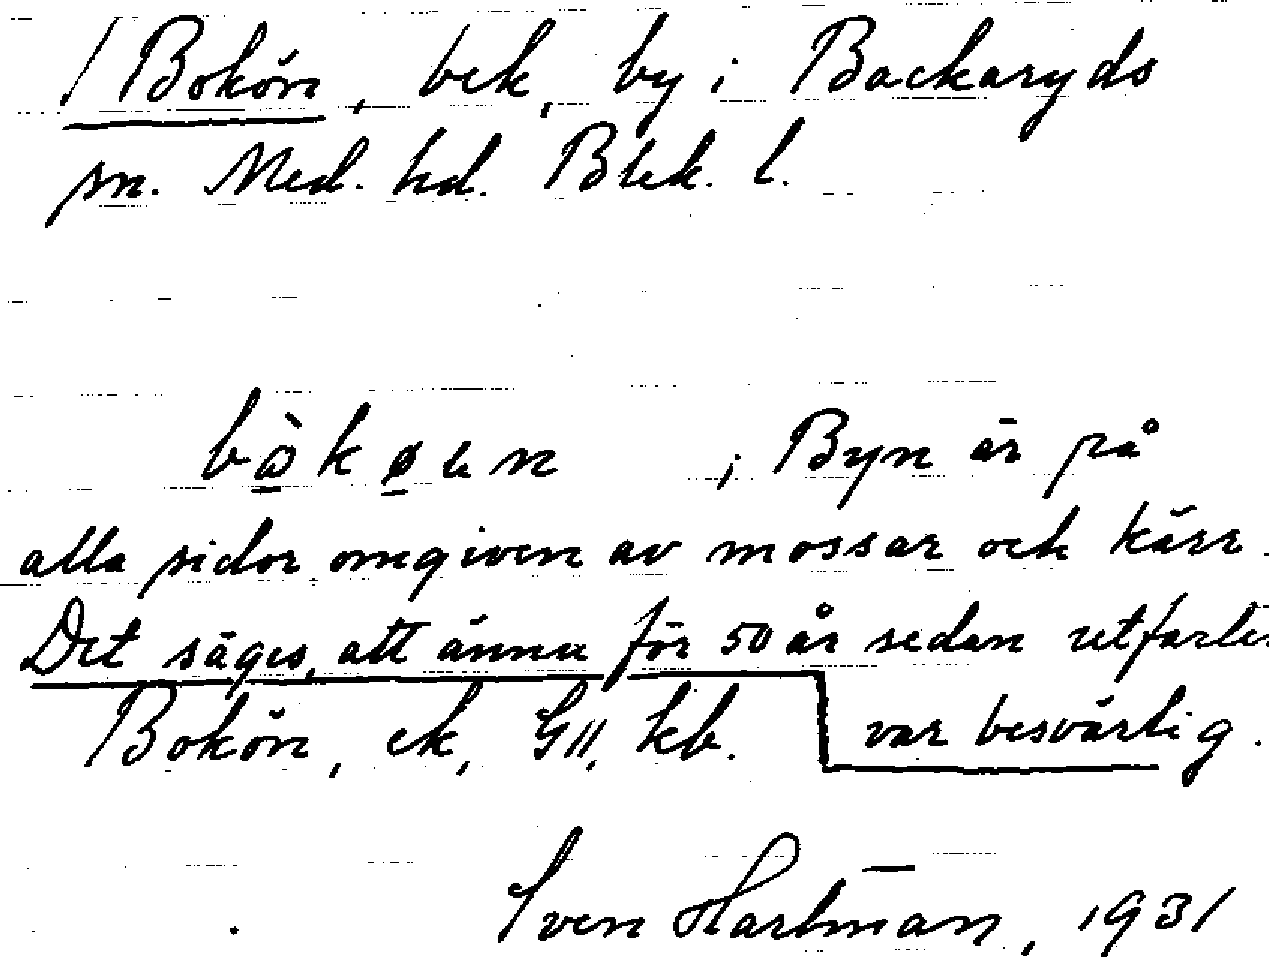 / Bokön, bek, by i Backaryds
sn. Med. hd. Blek. l.
; Byn är på
alla sidor omgiven av mossar och kärr.
Det säges, att ännu för 50 år sedan utfarten
Bokön, ek, GII, kb. var besvärlig.
Sven Hartman, 1931